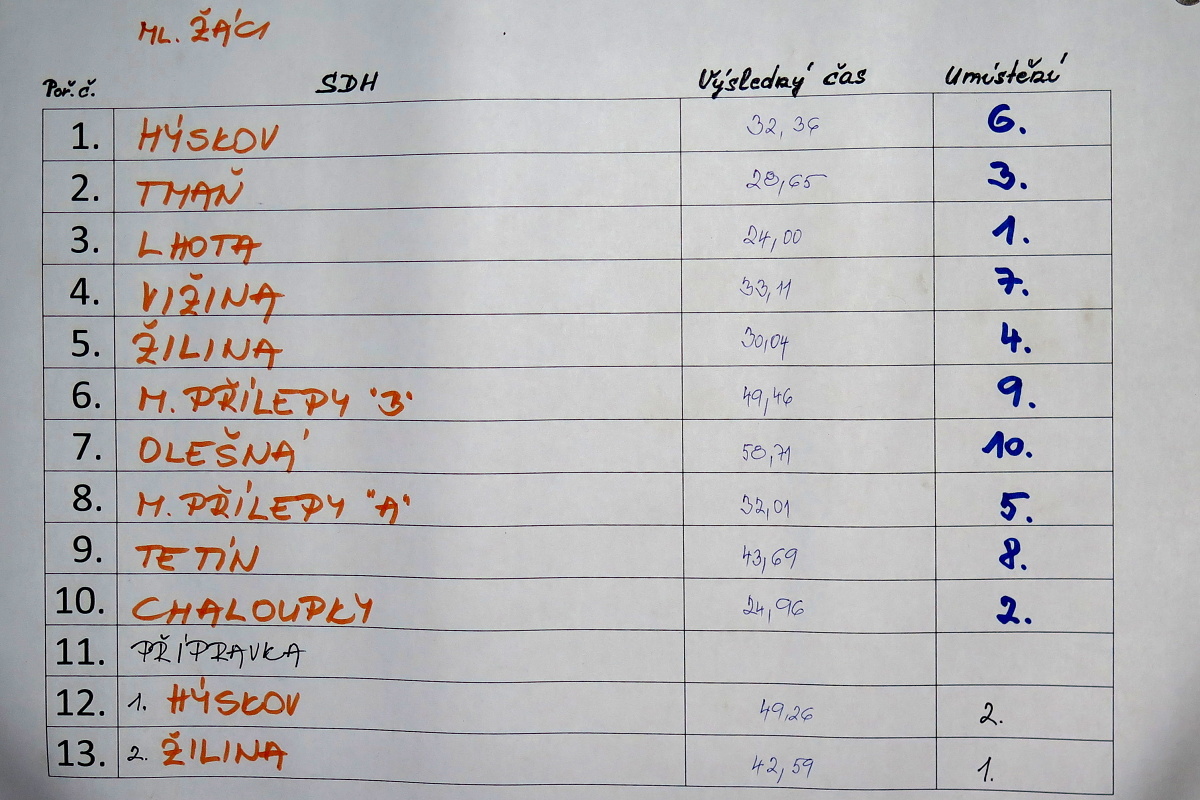 ML. ŽÁCI
Poř.č. SDH Výsledný čas Umístění
1. HÝSKOV 32,36 6.
2. TMAŇ 28,65 3.
3. LHOTA 24,00 1.
4. VIŽINA 33,11 7.
5. ŽILINA 30,04 4.
6. M. PŘÍLEPY "B" 49,46 9.
7. OLEŠNÁ 58,71 10.
8. M. PŘÍLEPY "A" 32,01 5.
9. TETÍN 43,69 8.
10. CHALOUPKY 24,96 2.
11. PŘÍPRAVKA
12. 1. HÝSKOV 49,26 2.
13. 2. ŽILINA 42,59 1.